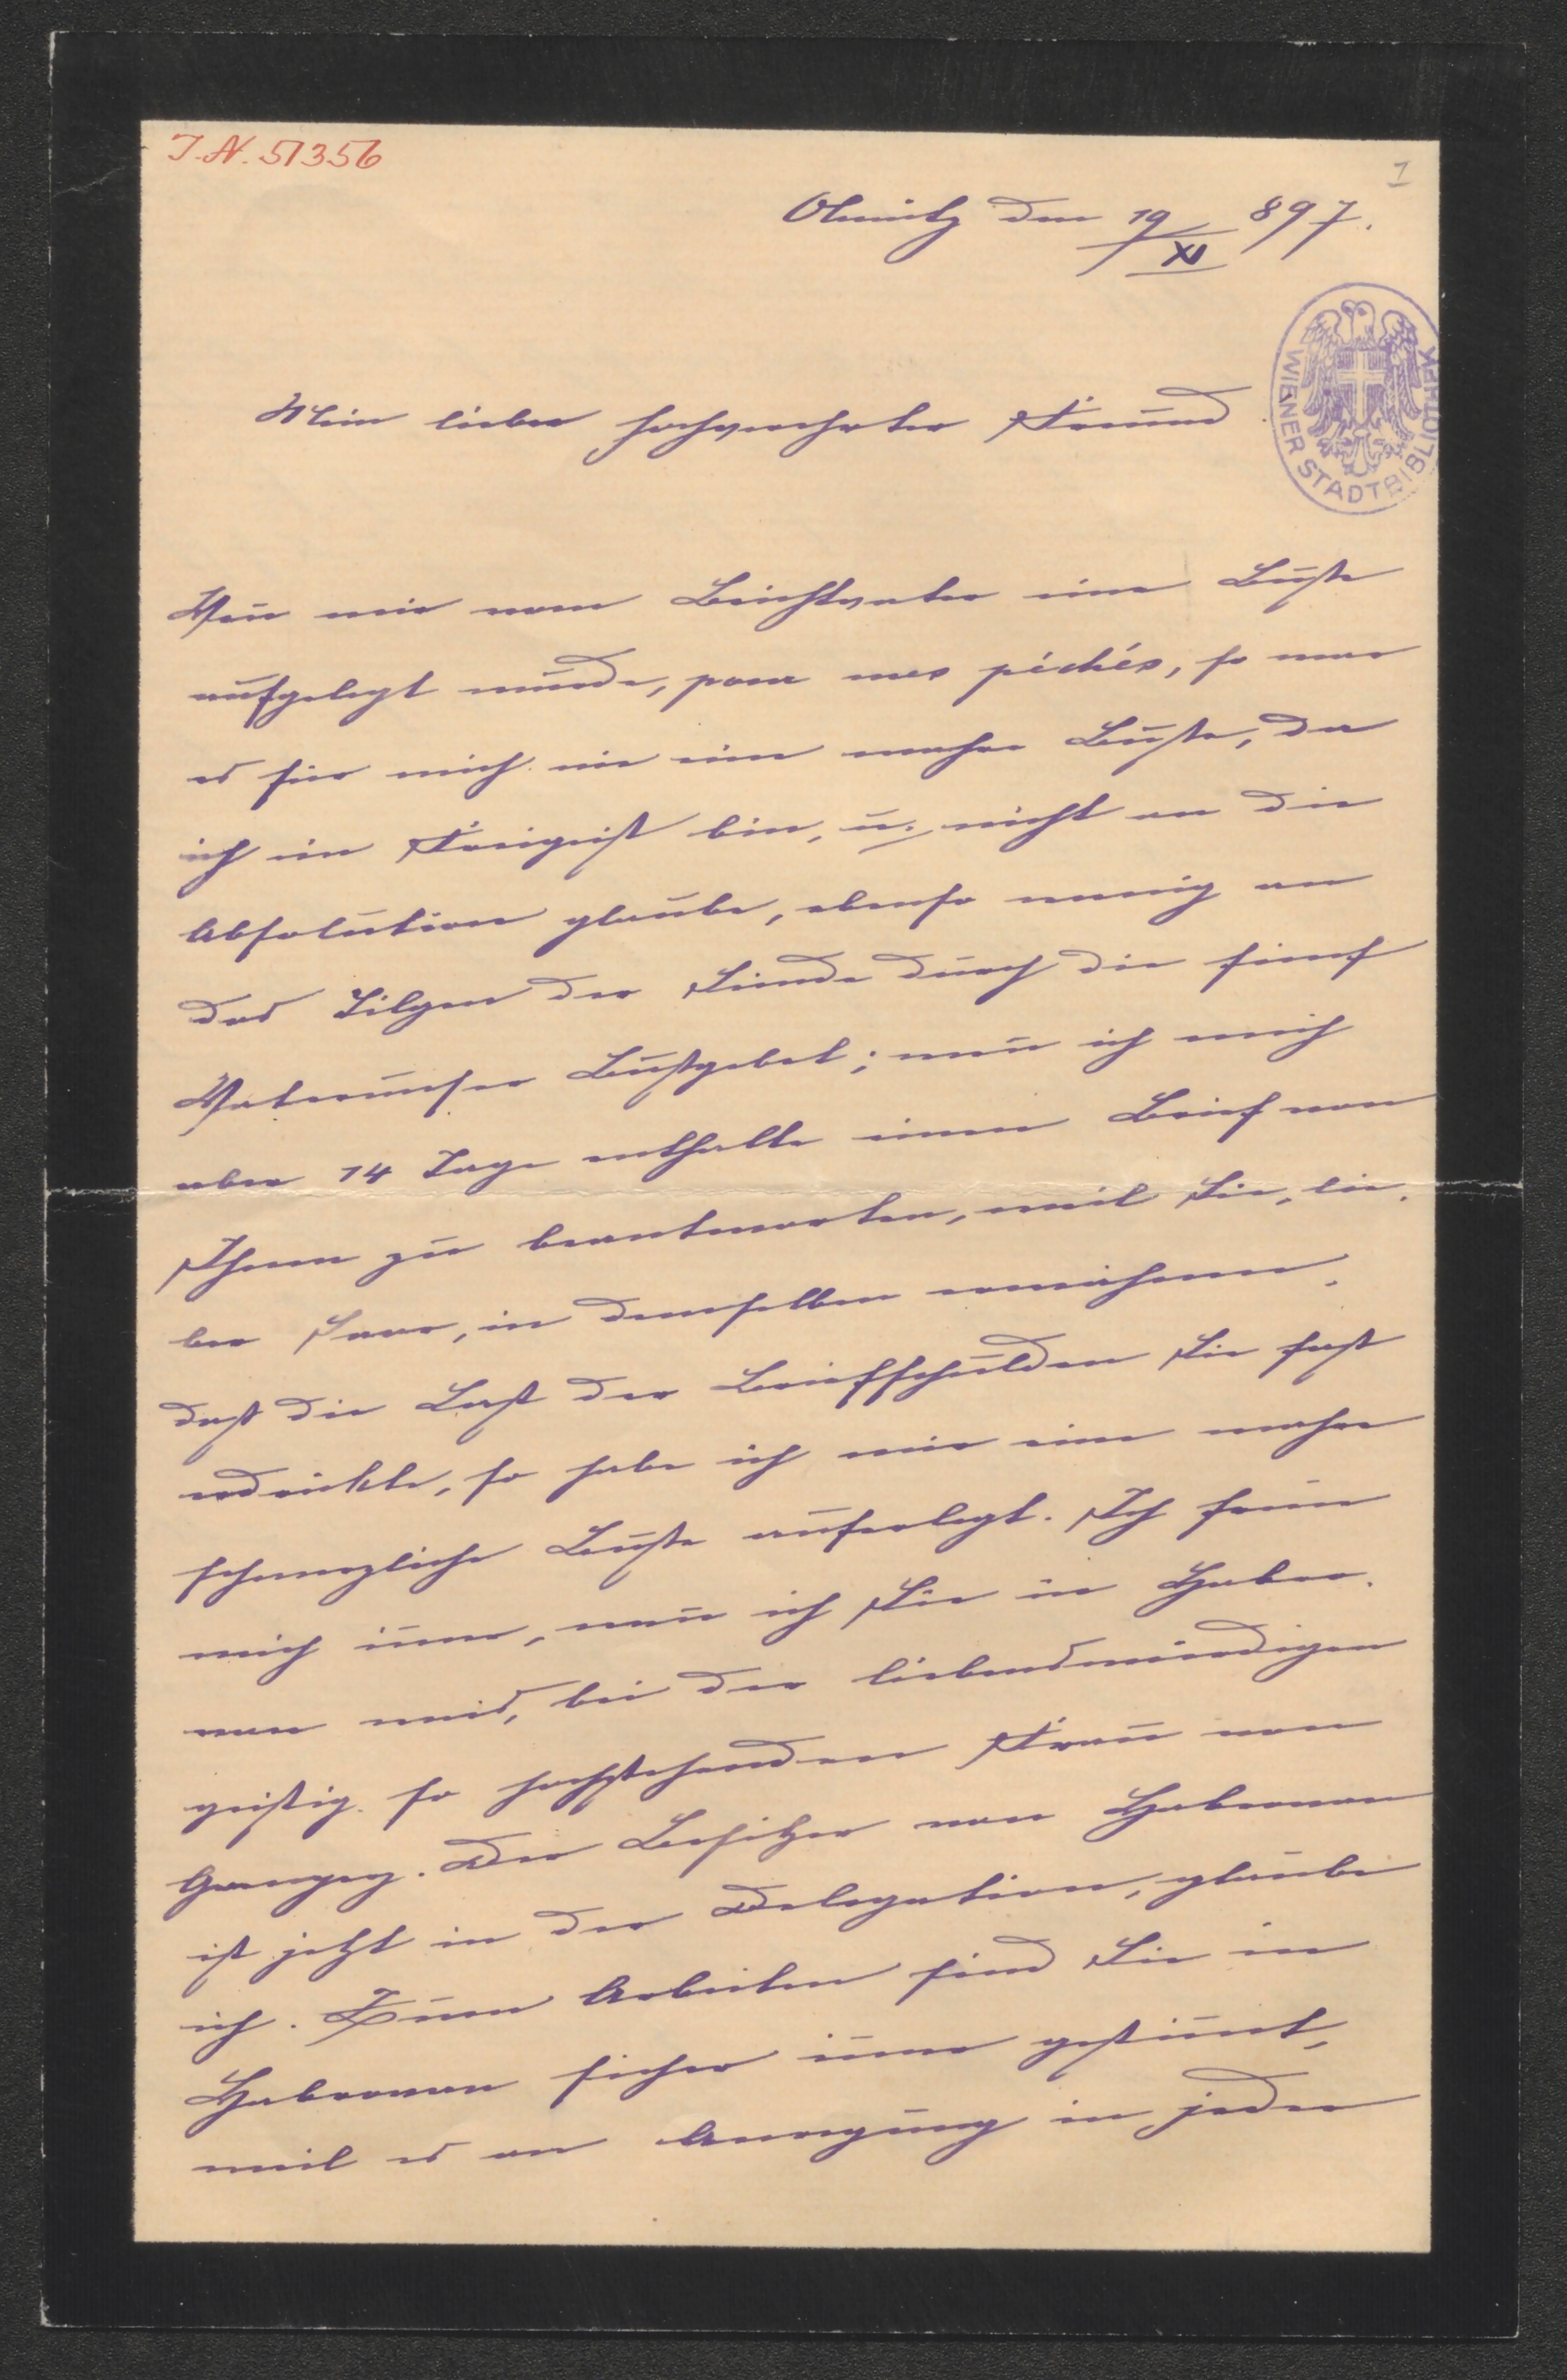 I.N. 51356
1
Olmütz den 19/XI 897.
WIENER STADTBIBLIOTHEK
Mein lieber hochverehrter Freund
Wen̄ mir vom Beichtvater eine Buße
aufgelegt wurde, pour mes péchés, so war
es für mich nie eine wahre Buße, da
ich ein Freigeist bin, u. nicht an die
Absolution glaube, ebenso wenig an
das Tilgen der Sünde durch die fünf
Vaterunser Bußgebet; wen̄ ich mich
aber 14 Tage enthalte einen Brief von
Ihnen zu beantworten, weil Sie, lie-
ber Saar, in demselben erwähnen,
daß die Last der Briefschulden Sie fast
erdrückte, so habe ich mir eine wahre
schmerzliche Buße auferlegt. Ich freue
mich im̄er, wen̄ ich Sie in Habro-
wan weiß, bei der liebenswürdigen
geistig so hochstehenden Frau von
Gomperz. Der Besitzer von Habrowan
ist jetzt in der Delegation, glaube
ich. Zum Arbeiten sind Sie in
Habrowan sicher im̄er gestim̄t,
weil es an Anregung in jeder